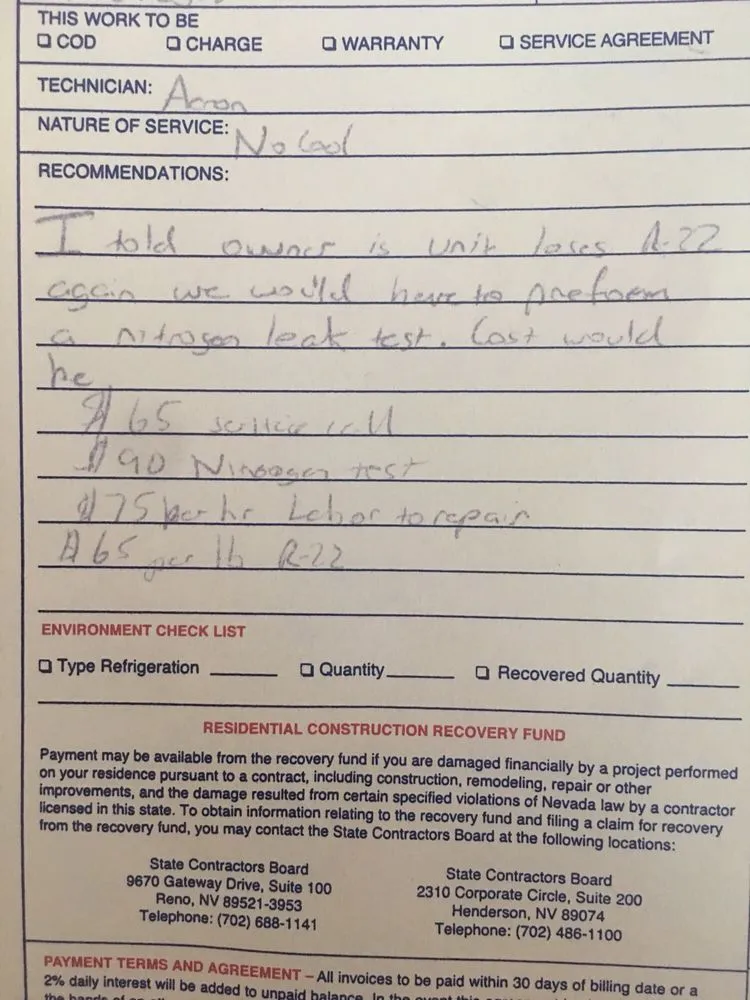 THIS WORK TO BE
☐ COD ☐ CHARGE ☐ WARRANTY ☐ SERVICE AGREEMENT
TECHNICIAN: Aaron
NATURE OF SERVICE: No Cool
RECOMMENDATIONS:
I told owner is unit loses R-22
again we would have to preform
a nitrogen leak test. Cost would
be
$65 service call
$90 Nitrogen test
$75 per hr Labor to repair
$65 per lb R-22
ENVIRONMENT CHECK LIST
☐ Type Refrigeration ☐ Quantity ☐ Recovered Quantity
RESIDENTIAL CONSTRUCTION RECOVERY FUND
Payment may be available from the recovery fund if you are damaged financially by a project performed
on your residence pursuant to a contract, including construction, remodeling, repair or other
improvements, and the damage resulted from certain specified violations of Nevada law by a contractor
licensed in this state. To obtain information relating to the recovery fund and filing a claim for recovery
from the recovery fund, you may contact the State Contractors Board at the following locations:
State Contractors Board
9670 Gateway Drive, Suite 100
Reno, NV 89521-3953
Telephone: (702) 688-1141
State Contractors Board
2310 Corporate Circle, Suite 200
Henderson, NV 89074
Telephone: (702) 486-1100
PAYMENT TERMS AND AGREEMENT – All invoices to be paid within 30 days of billing date or a
2% daily interest will be added to unpaid balance. In the event this
the hands of an